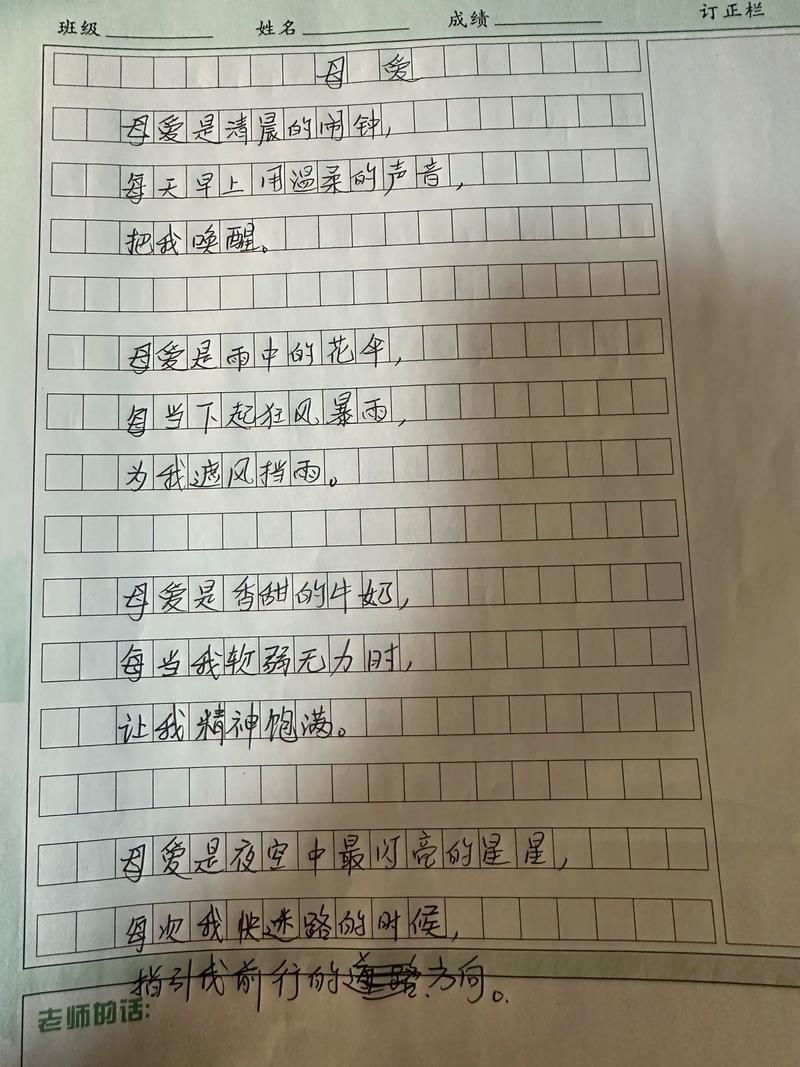 班级 姓名 成绩 订正栏
母爱
母爱是清晨的闹钟，
每天早上用温柔的声音，
把我唤醒。
母爱是雨中的花伞，
每当下起狂风暴雨，
为我遮风挡雨。
母爱是香甜的牛奶，
每当我软弱无力时，
让我精神饱满。
母爱是夜空中最闪亮的星星，
每次我快迷路的时候，
指引我前行的道路方向。
老师的话：